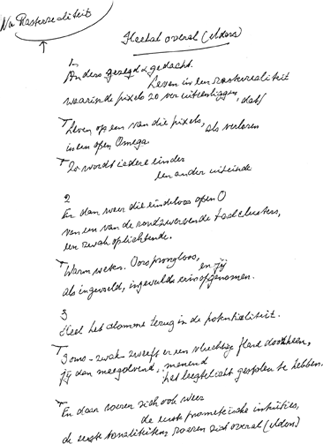 Na Rasterrealiteit
Heelal overal (elders)
1
Anders gezegd & gedacht.
Leven in een rasterrealiteit
waarin de pixels zo ver uiteenliggen, dat/
Leven op een van die pixels, als verloren
in een open Omega
Zo wordt iedere einder
een ander uiteinde
2
En dan weer die eindeloos open O
van een van de rondzwervende tadclusters,
een zwak oplichtende.
Warm weten. Oorsprongloos, en jij
als ingevuld, ingevulde erin opgenomen.
3
Heel het alomme terug in de potentialiteit.
Soms - zwak zweeft er een vluchtige flard doorheen,
jij dan meegolvend, menend
het leegtelicht gestolen te hebben.
En daar roeren zich ook weer
de eerste prometeïsche intuïties,
de eerste tonaliteiten, roeren zich overal (elders)